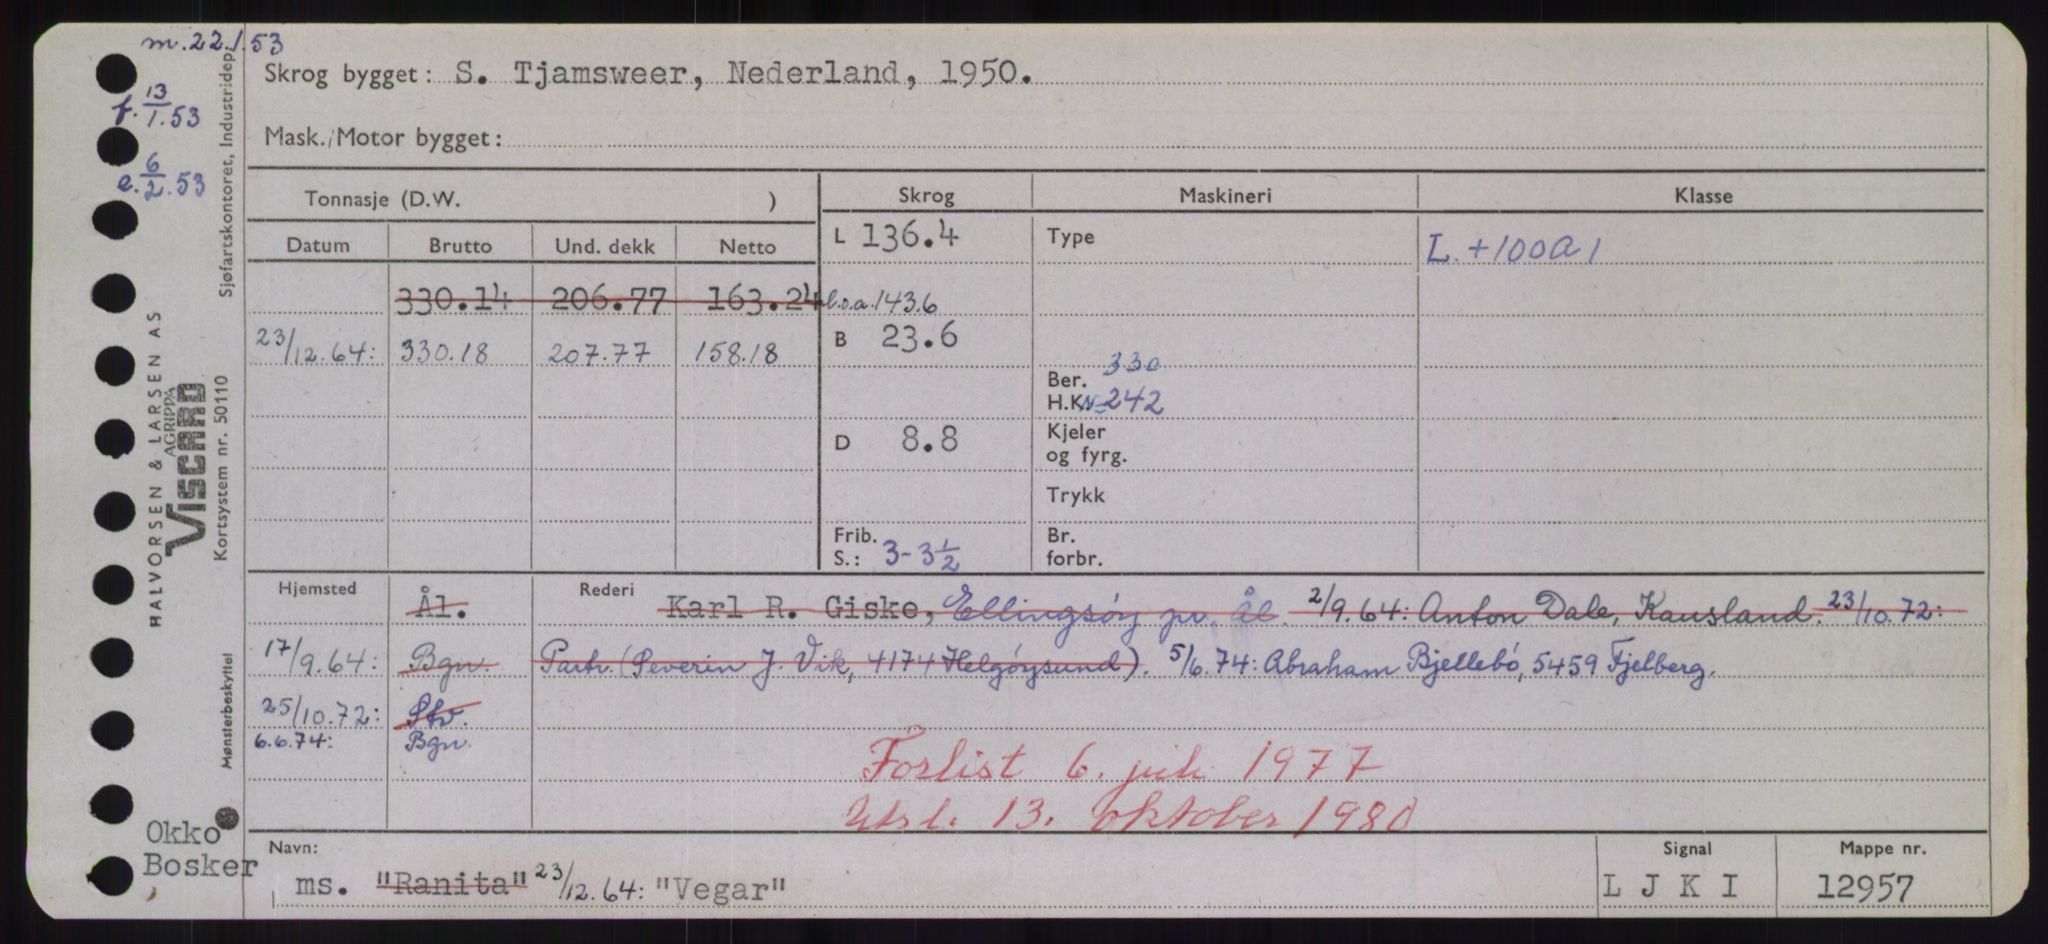 m.22.1.53
f. 13/1.53
e. 6/2.53
HALVORSEN & LARSEN AS
AGRIPPA
VISCARD
Kortsystem nr. 50110
Sjøfartskontoret, Industridep.
Mønsterbeskyttet
Okko
Bosker
Skrog bygget: S. Tjamsweer, Nederland, 1950.
Mask./Motor bygget:
Tonnasje (D.W. )
Skrog Maskineri Klasse
Datum Brutto Und. dekk Netto
L 136.4 Type L. +100A1
330.14 206.77 163.24 l.o.a. 143.6
23/12.64: 330.18 207.77 158.18 B 23.6
Ber. 330
H.K. N= 242
D 8.8 Kjeler
og fyrg.
Trykk
Frib.
S.: 3-3½
Br.
forbr.
Hjemsted Ål. Rederi Karl R. Giske, Ellingsöy pr. Ål. 2/9.64: Anton Dale, Kausland. 23/10.72:
17/9.64: Bgn. Partr. (Severin J. Vik, 4174 Helgöysund). 5/6.74: Abraham Bjellebö, 5459 Fjelberg.
25/10.72: Stv.
6.6.74: Bgn.
Forlist 6. juli 1977
Utsl. 13. oktober 1980
Navn: Signal Mappe nr.
ms. "Ranita" 23/12.64: "Vegar" L J K I 12957